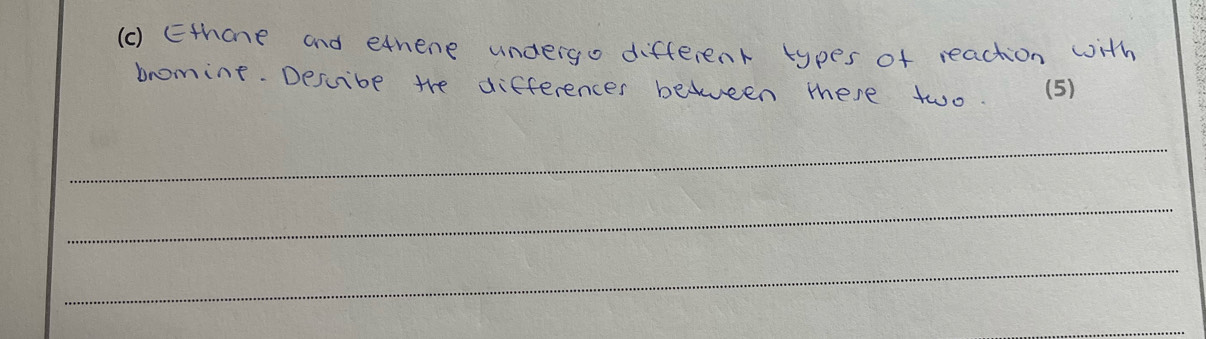 (c) Ethane and ethene undergo different types of reaction with
bromine. Describe the differences between these two. (5)